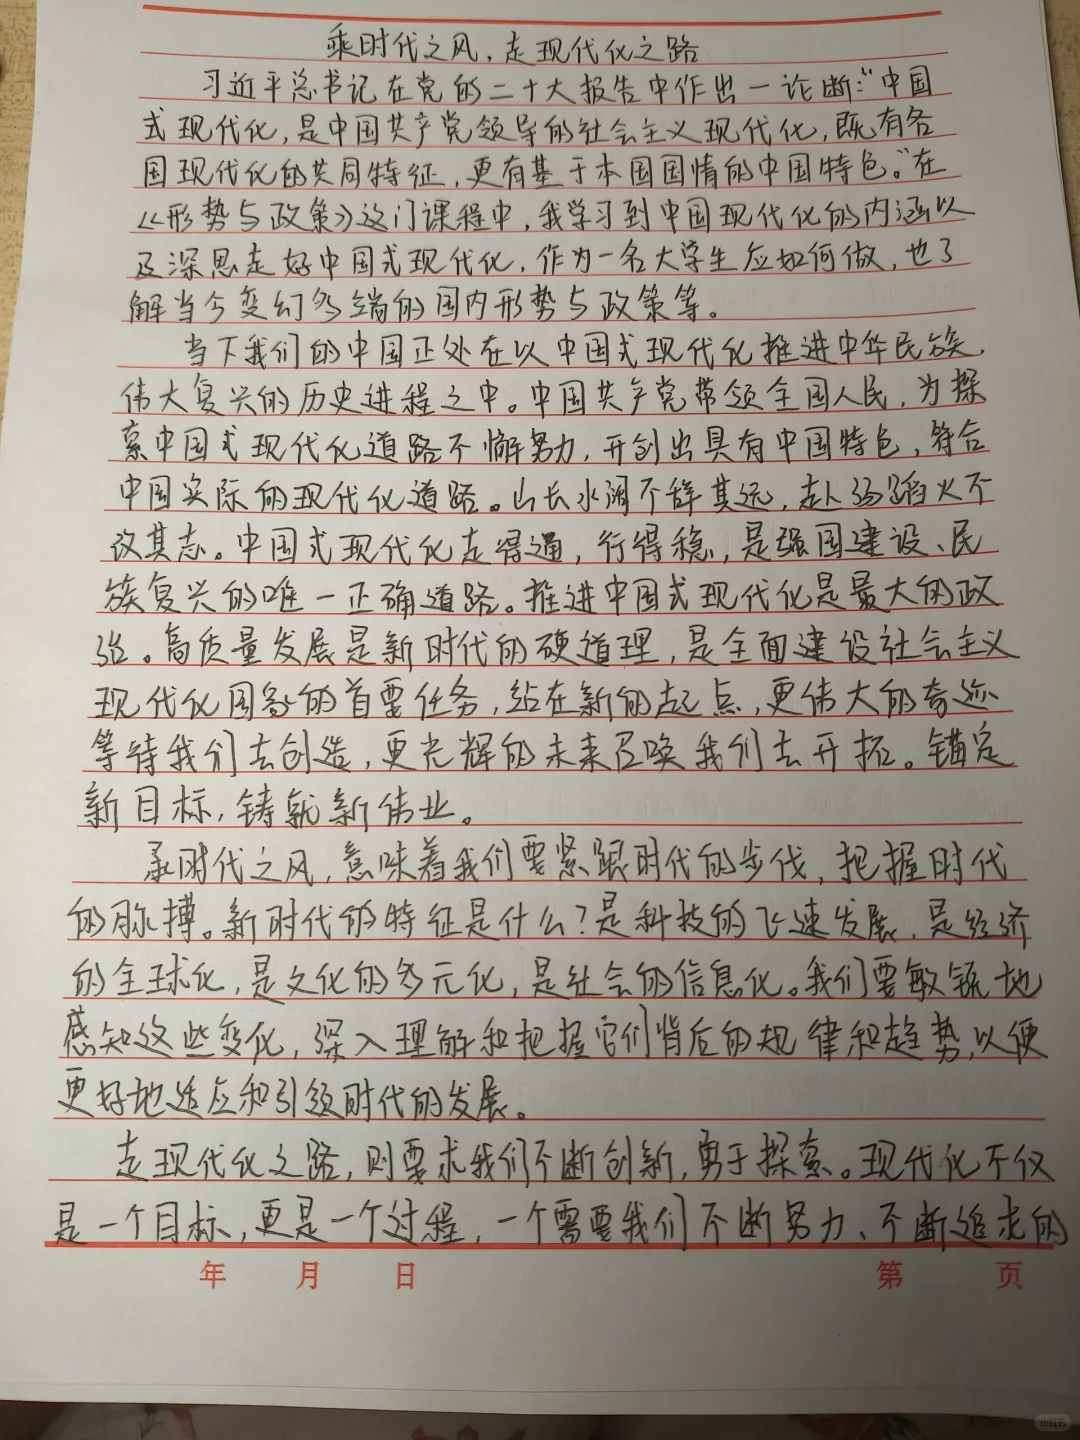 乘时代之风，走现代化之路
习近平总书记在党的二十大报告中作出一论断：“中国
式现代化，是中国共产党领导的社会主义现代化，既有各
国现代化的共同特征，更有基于本国国情的中国特色。”在
《形势与政策》这门课程中，我学习到中国现代化的内涵以
及深思走好中国式现代化，作为一名大学生应如何做，也了
解当今变幻多端的国内形势与政策等。
当下我们的中国正处在以中国式现代化推进中华民族
伟大复兴的历史进程之中。中国共产党带领全国人民，为探
索中国式现代化道路不懈努力，开创出具有中国特色，符合
中国实际的现代化道路。山长水阔不辞其远，赴汤蹈火不
改其志。中国式现代化走得通，行得稳，是强国建设、民
族复兴的唯一正确道路。推进中国式现代化是最大的政
治。高质量发展是新时代的硬道理，是全面建设社会主义
现代化国家的首要任务，站在新的起点，更伟大的奇迹
等待我们去创造，更光辉的未来召唤我们去开拓。锚定
新目标，铸就新伟业。
乘时代之风，意味着我们要紧跟时代的步伐，把握时代
的脉搏。新时代的特征是什么？是科技的飞速发展，是经济
的全球化，是文化的多元化，是社会的信息化。我们要敏锐地
感知这些变化，深入理解和把握它们背后的规律和趋势，以便
更好地适应和引领时代的发展。
走现代化之路，则要求我们不断创新，勇于探索。现代化不仅
是一个目标，更是一个过程，一个需要我们不断努力、不断追求的
年 月 日 第 页
小红书